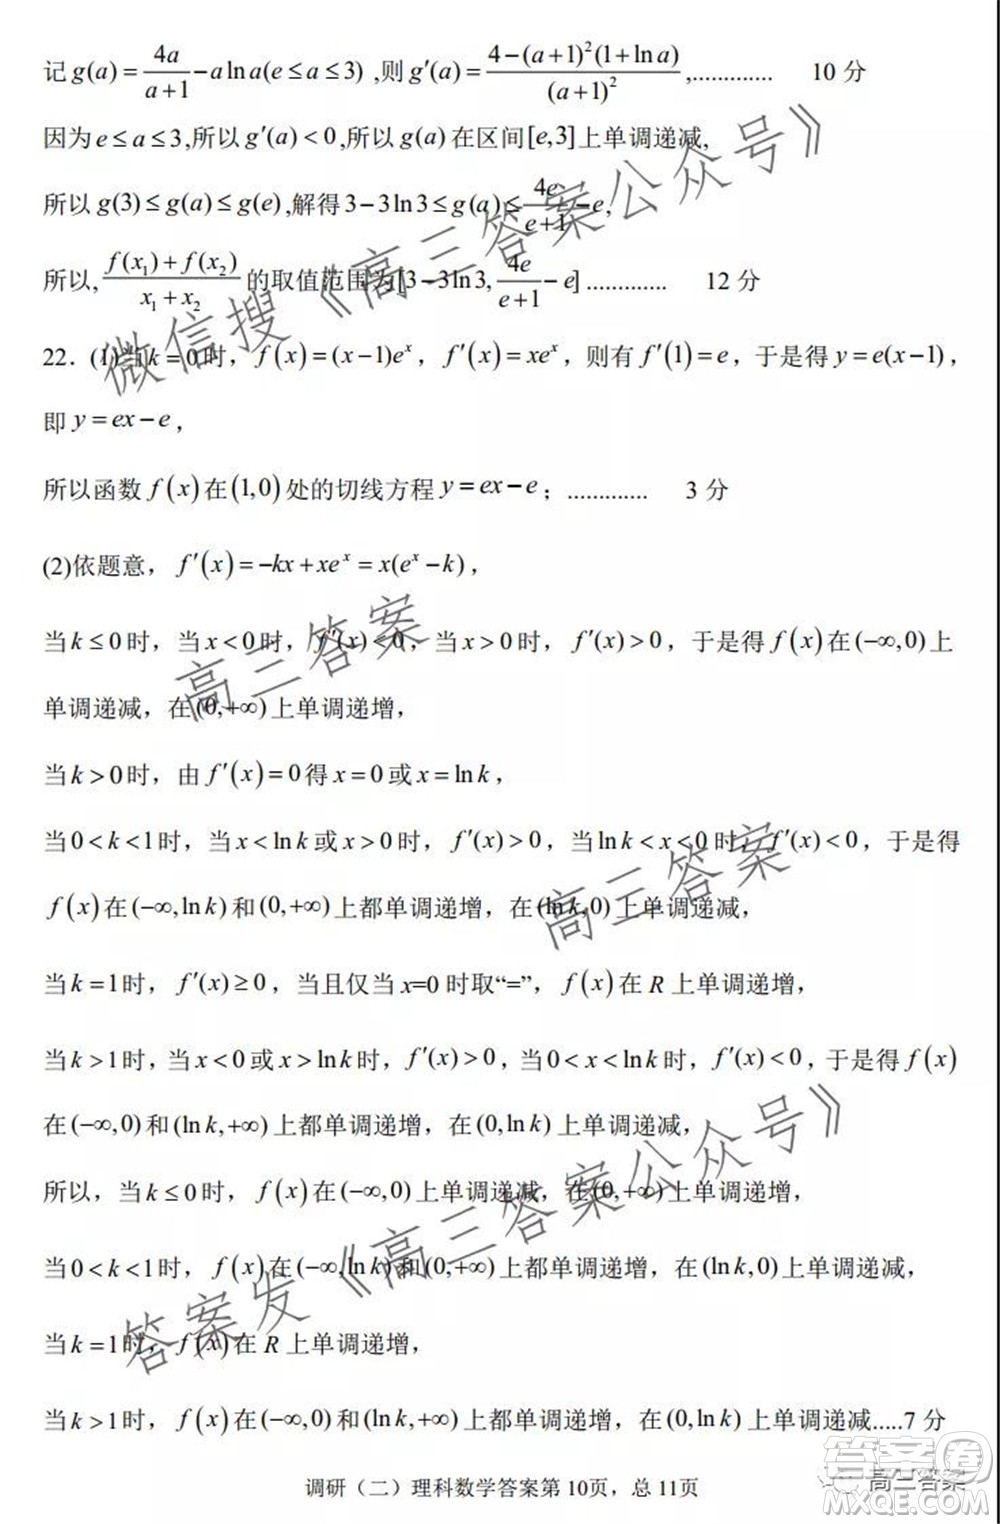 记 g(a) = 4a/(a+1) − a ln a (e ≤ a ≤ 3) ,则 g′(a) = [4−(a+1)²(1+ln a)]/(a+1)² ,............. 10 分
因为 e ≤ a ≤ 3,所以 g′(a) < 0 ,所以 g(a) 在区间[e,3]上单调递减,
所以 g(3) ≤ g(a) ≤ g(e) ,解得 3−3ln3 ≤ g(a) ≤ 4e/(e+1) − e,
所以, [f(x₁)+f(x₂)]/(x₁+x₂) 的取值范围为[3−3ln3, 4e/(e+1) − e] ............. 12 分
22．(1)当 k = 0 时， f(x) = (x−1)eˣ ， f′(x) = xeˣ ，则有 f′(1) = e ，于是得 y = e(x−1) ，
即 y = ex − e ，
所以函数 f(x) 在 (1,0) 处的切线方程 y = ex − e ；............. 3 分
(2)依题意， f′(x) = −kx + xeˣ = x(eˣ − k) ，
当 k ≤ 0 时，当 x < 0 时， f′(x) < 0 ，当 x > 0 时， f′(x) > 0 ，于是得 f(x) 在 (−∞,0) 上
单调递减，在 (0,+∞) 上单调递增，
当 k > 0 时，由 f′(x) = 0 得 x = 0 或 x = ln k ，
当 0 < k < 1 时，当 x < ln k 或 x > 0 时， f′(x) > 0 ，当 ln k < x < 0 时， f′(x) < 0 ，于是得
f(x) 在 (−∞,ln k) 和 (0,+∞) 上都单调递增，在 (ln k,0) 上单调递减，
当 k = 1 时， f′(x) ≥ 0 ，当且仅当 x=0 时取“=”， f(x) 在 R 上单调递增，
当 k > 1 时，当 x < 0 或 x > ln k 时， f′(x) > 0 ，当 0 < x < ln k 时， f′(x) < 0 ，于是得 f(x)
在 (−∞,0) 和 (ln k,+∞) 上都单调递增，在 (0,ln k) 上单调递减，
所以，当 k ≤ 0 时， f(x) 在 (−∞,0) 上单调递减，在 (0,+∞) 上单调递增，
当 0 < k < 1 时， f(x) 在 (−∞,ln k) 和 (0,+∞) 上都单调递增，在 (ln k,0) 上单调递减，
当 k = 1 时， f(x) 在 R 上单调递增，
当 k > 1 时， f(x) 在 (−∞,0) 和 (ln k,+∞) 上都单调递增，在 (0,ln k) 上单调递减.....7 分
调研（二）理科数学答案第 10页，总 11页
微信搜《高三答案公众号》
高三答案
高三答案
答案发《高三答案公众号》
高三答案
答案圈
MXQE.COM